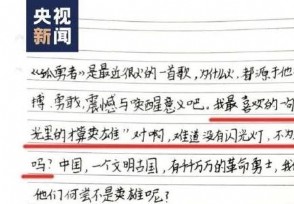 央视
新闻
《孤勇者》是最近很火的一首歌，为什么火，都源于他
搏、勇敢、震撼与突醒意义吧。我最喜欢的一句
光里的才算英雄”对啊，难道没有闪光灯，不为
吗？中国，一个文明古国，有千千万万的革命勇士，我
他们何尝不是英雄呢？